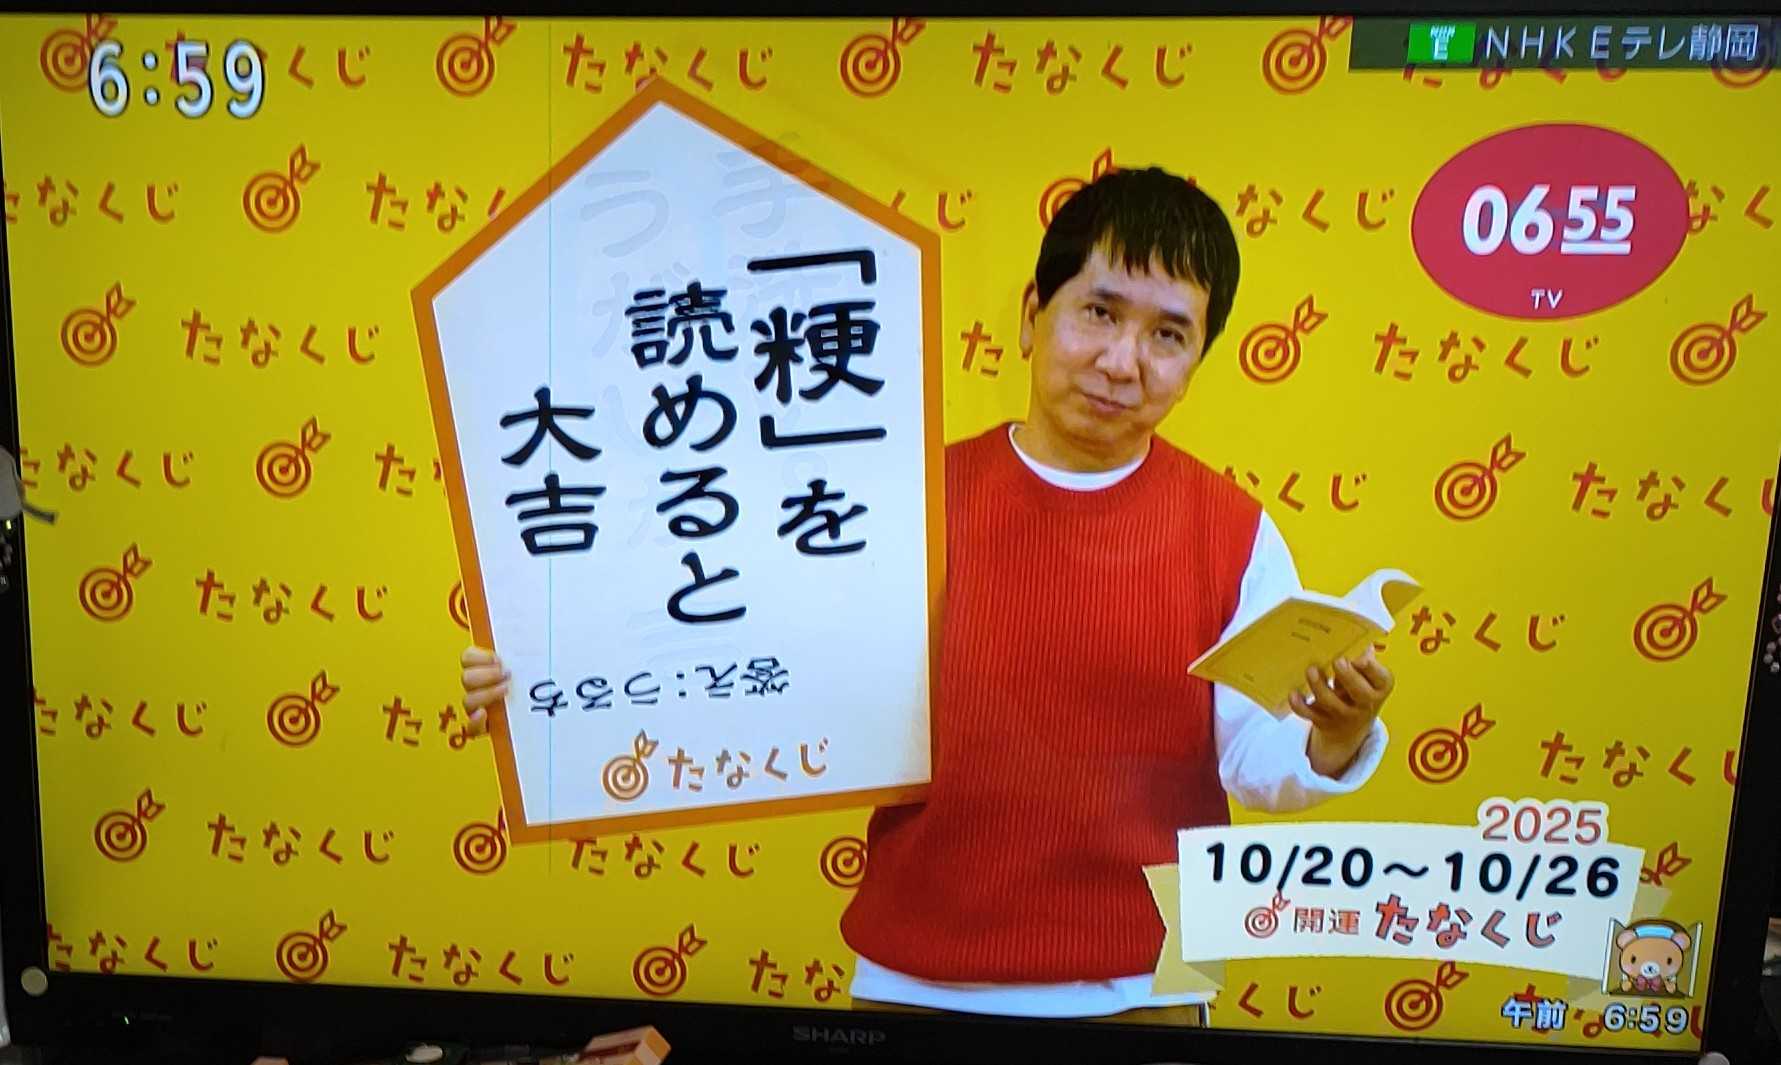 6:59
NHK
E
NHKEテレ静岡
0655
TV
「粳」を
読めると
大吉
答え:うるち
たなくじ
2025
10/20～10/26
開運 たなくじ
午前 6:59
たなくじ
SHARP